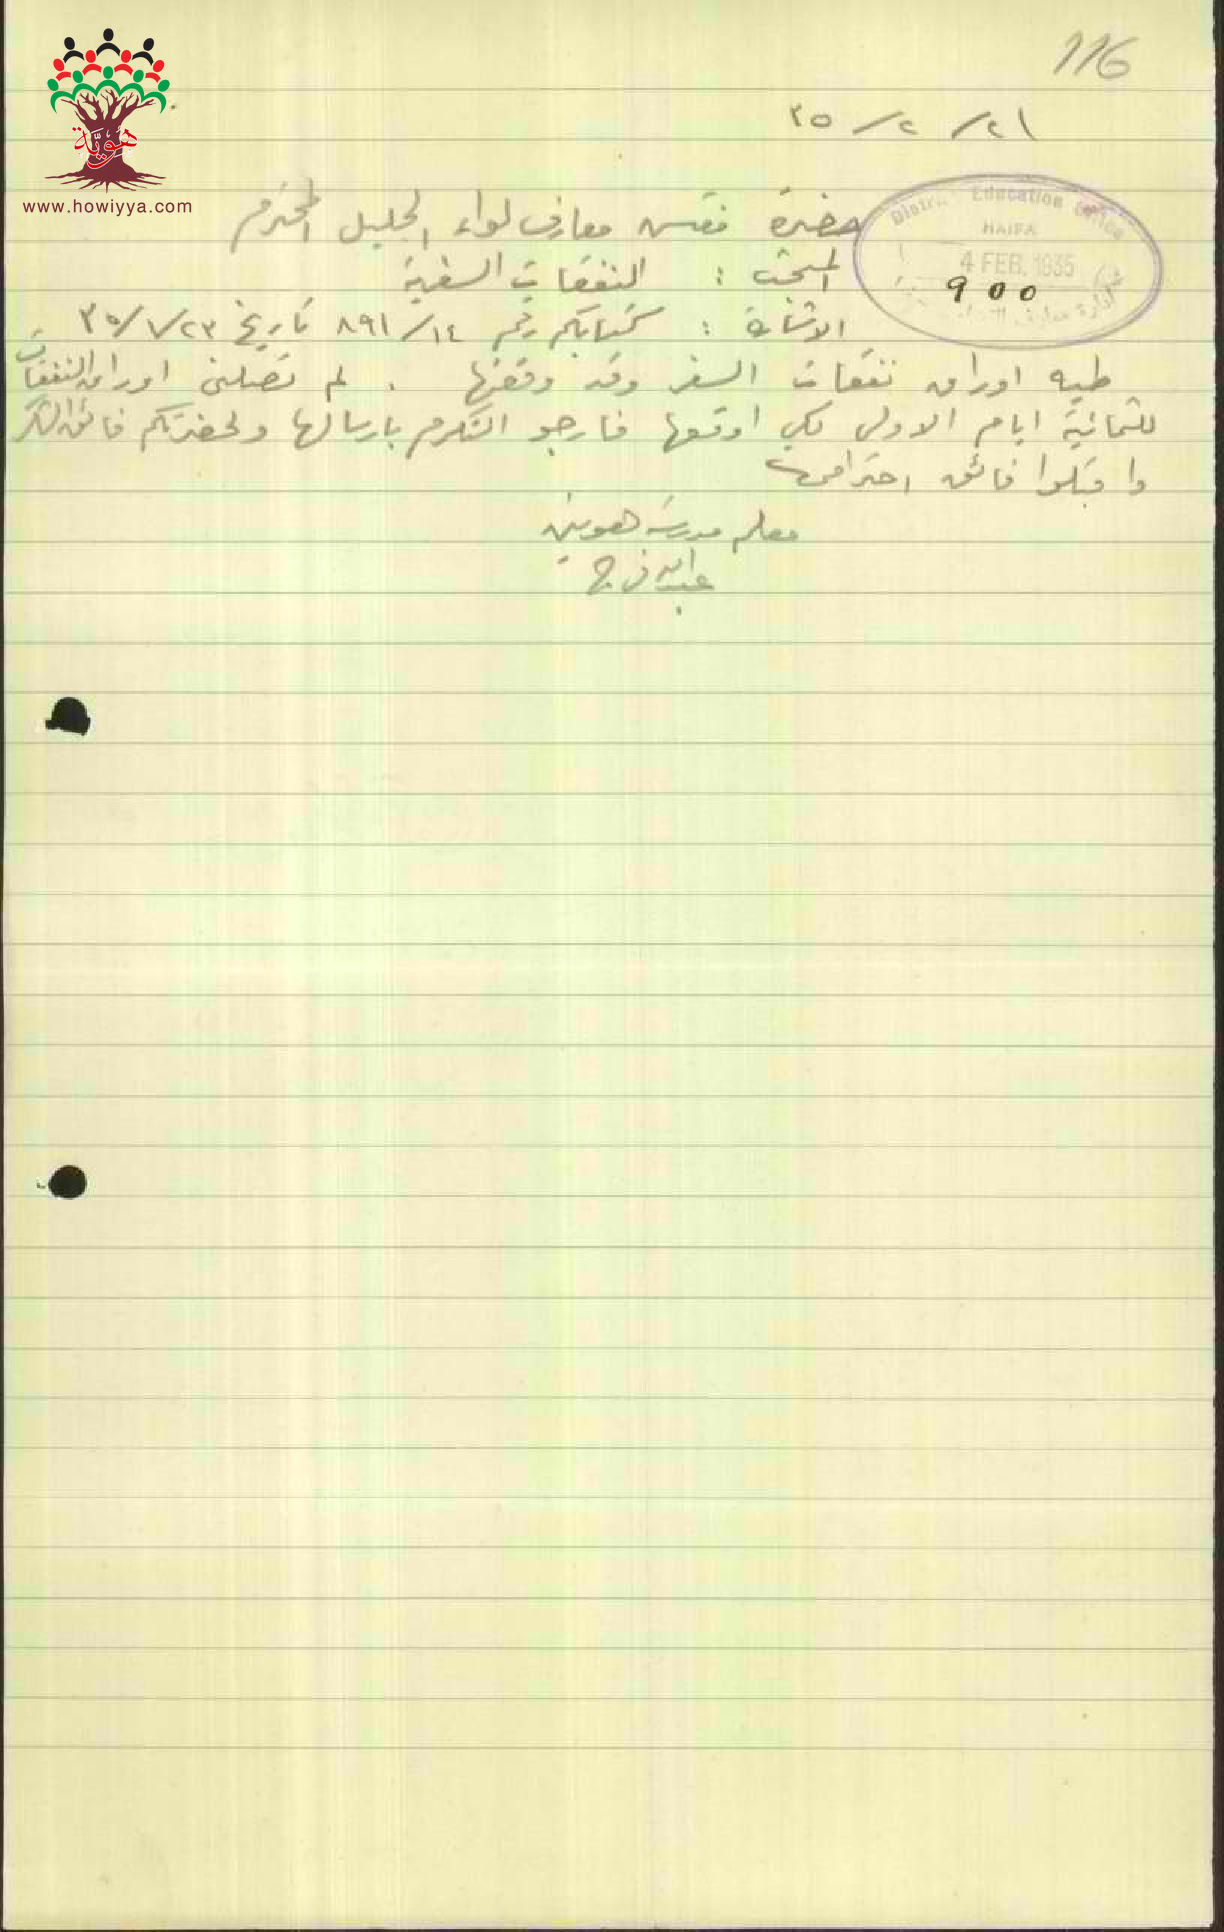 116
هوية
www.howiyya.com
٣٥/٢/٢١
حضرة مفتش معارف لواء الجليل المحترم
District Education Office
HAIFA
4 FEB. 1935
900
المبحث : النفقات السفرية
الاشارة : كتابكم رقم ٨٩١/١٤ تاريخ ٣٥/١/٢٣
طيه اوراق نفقات السفر وقد وقعتها . لم تصلني اوراق النفقات
للثمانية ايام الاولى لكي اوقعها فارجو التكرم بارسالها ولحضرتكم فائق الشكر
واقبلوا فائق احترامي
معلم مدرسة هونين
عبدالله فرج